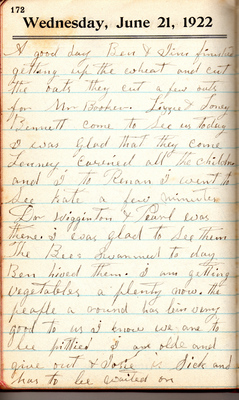 172
Wednesday, June 21, 1922
A good day Ben & Dins finished
getting up the wheat and cut
the oats they cut a few oats
for Mr Booker. Lizzie & Loney
Bennett come to see us today
I was glad that they come
Lonney carried all the children
and I to Renan I went to
see Kate a few minutes
Dr Wigginton & Pearl was
there. i was glad to see them
the Bees swarmed to day
Ben hived them. I am getting
vegetables a plenty now. the
people a round has bin very
good to us I know we are to
be pittied I am old and
give out & Josie is sick and
has to be waited on